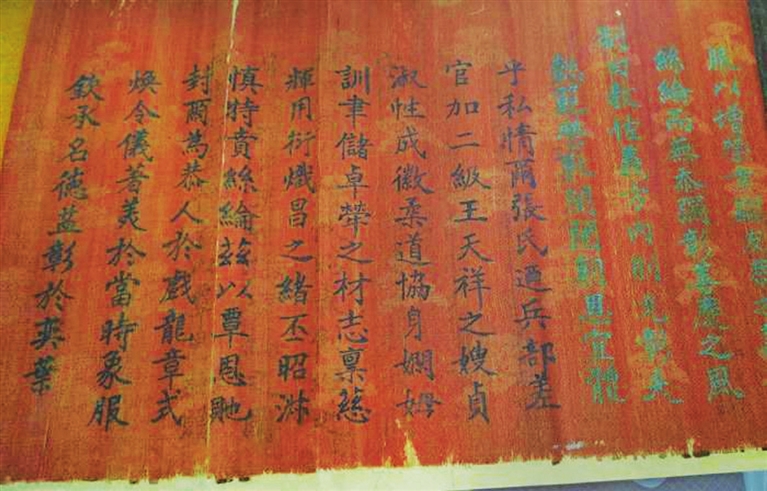 服以增榮
絲綸而無忝彌彰善慶之風
制曰
恩宜體
乎私情爾張氏迺兵部差
官加二級王天祥之嫂貞
淑性成徽柔道協身嫻姆
訓聿儲卓犖之材志稟慈
輝用衍熾昌之緒丕昭淑
慎特賁絲綸茲以覃恩貤
封爾為恭人於戲龍章式
煥令儀著美於當時象服
欽承名德益彰於奕葉